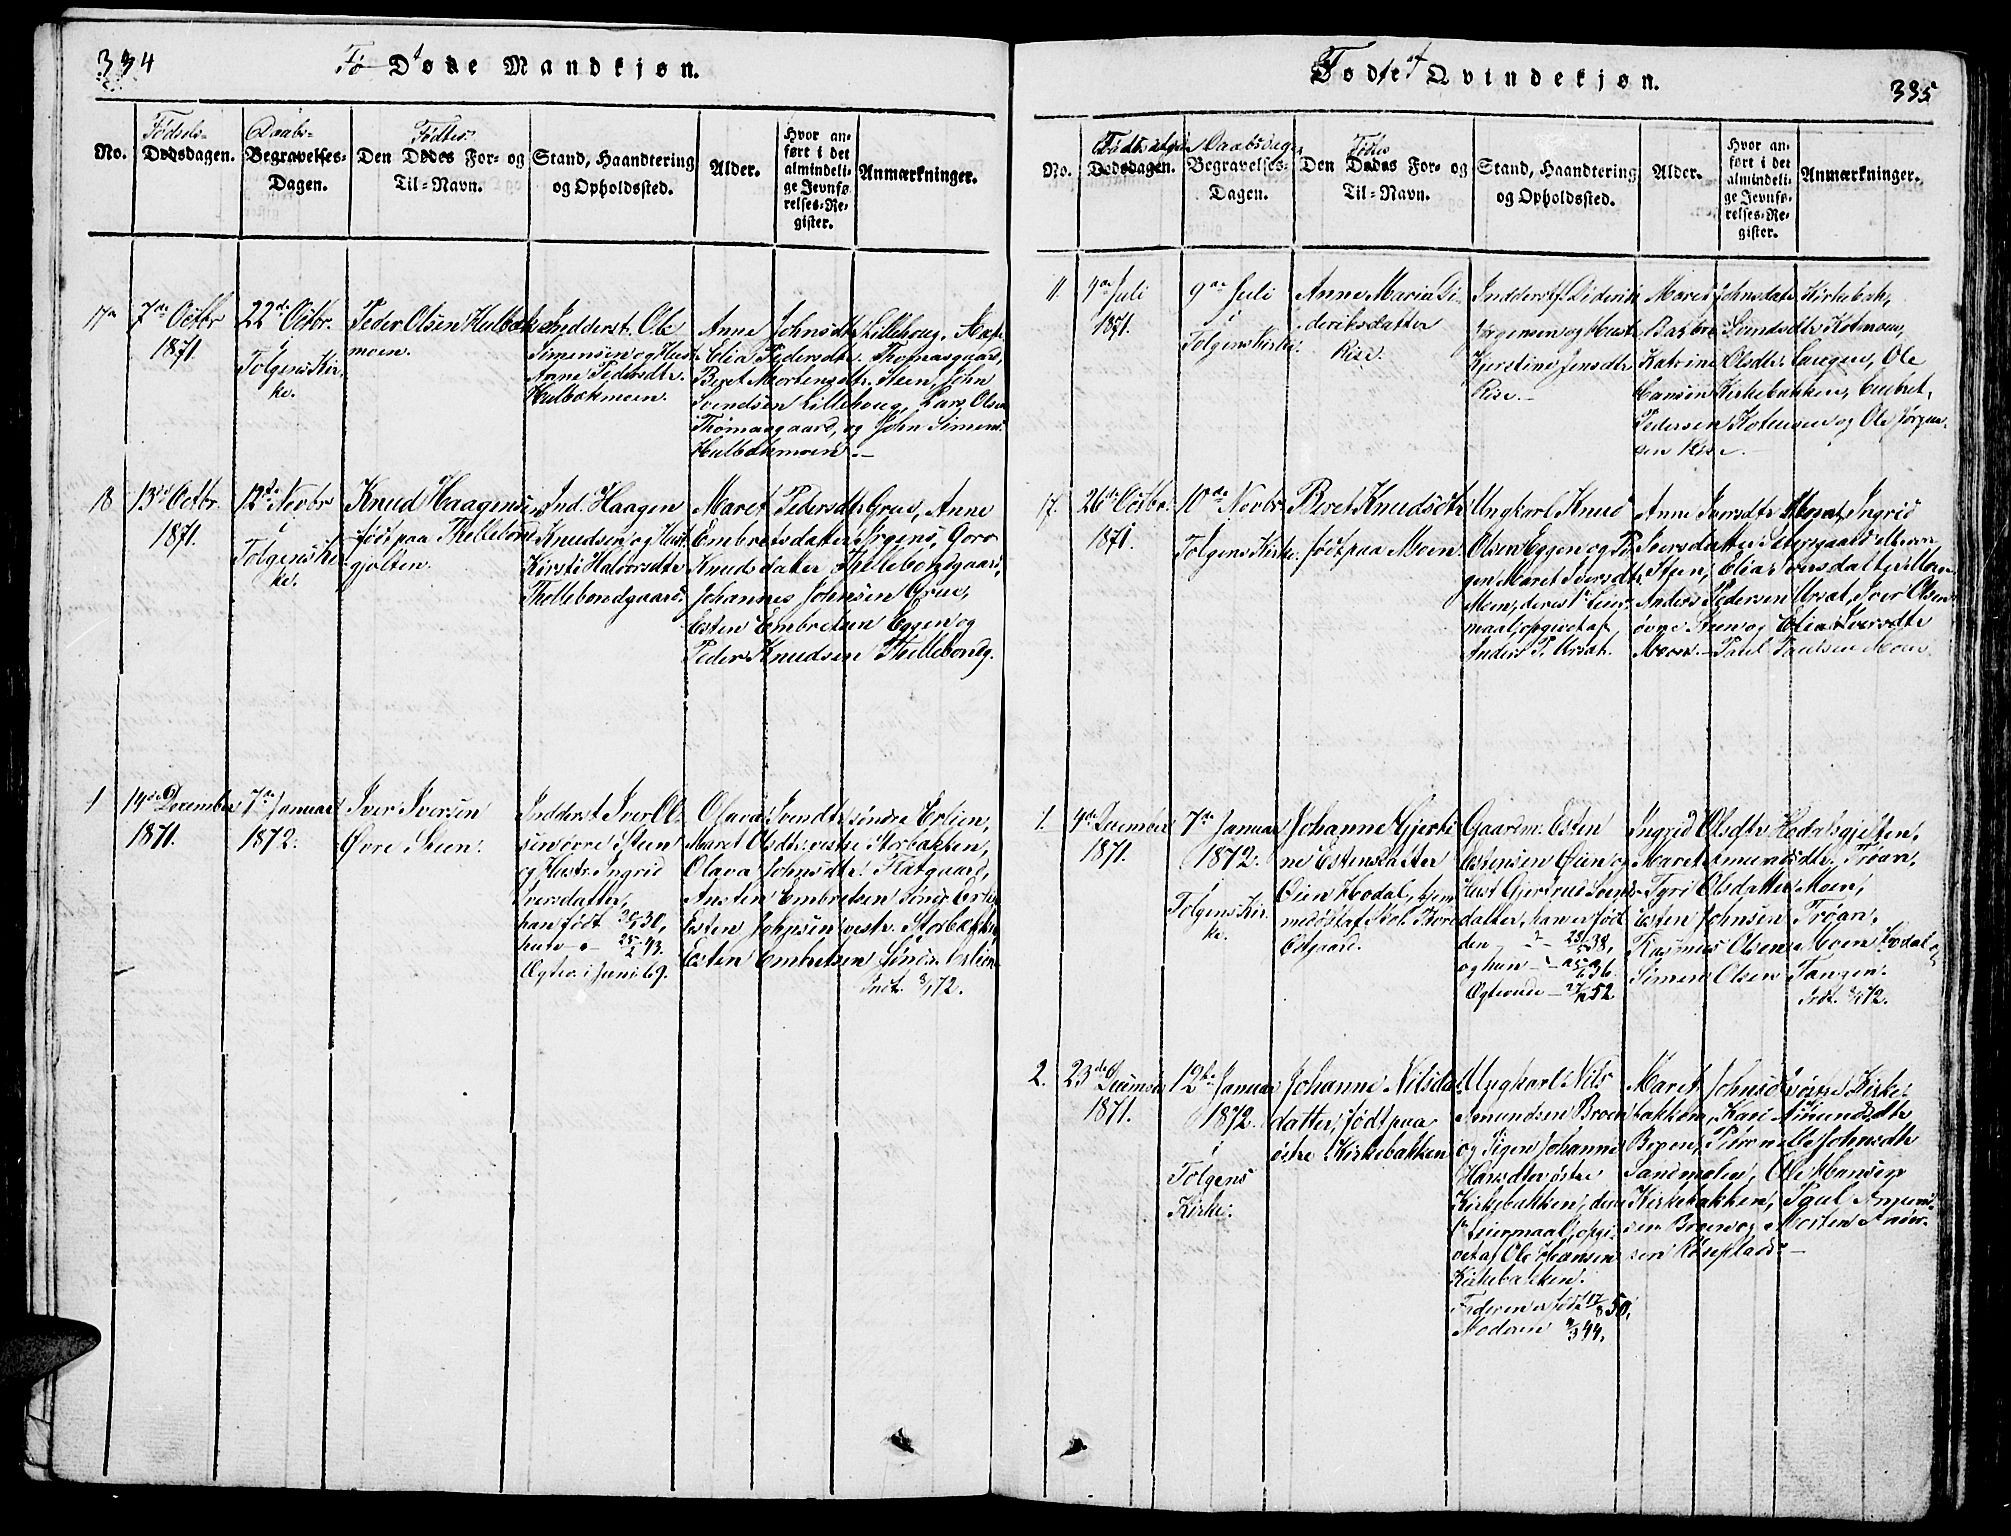 334
Fø-Døde Mandkjøn.
No.
Fødsels-
Dødsdagen.
Daabs-
Begravelses-
Dagen.
Fødtes
Den Dødes For- og
Til-Navn.
Stand, Haandtering
og Opholdssted.
Alder.
Hvor an-
ført i det
almindeli-
ge Jevnfø-
relses-Re-
gister.
Anmærkninger.
17
7de Octbr
1871.
22de Octbr.
i
Tolgens Kir-
ke.
Peder Olsen Hulbæk-
moen.
Indderst. Ole
Simensen og Hust.
Anne Pedersdtr.
Hulbækmoen.
Anne Johnsdtr Lillehoug,
Elia Pedersdtr. Thomasgaard,
Beret Mortensdtr. Steen, John
Svendsen Lillehoug, Lars Olsen
Thomasgaard, og John Simens.
Hulbækmoen.—
18
13de Octbr.
1871.
12te Novbr
i
Tolgens Kir-
ke.
Knud Haagensen
født paa Thellebond-
gjølten.
Ind. Haagen
Knudsen og Hust.
Kirsti Halvorsdtr
Thellebondgaard.
Maret Pedersdtr Grue, Anne
Embretsdatter Ørgens, Goro
Knudsdatter Thellebondgaard,
Johannes Johnsen Grue,
Esten Embretsen Eggen og
Peder Knudsen Thellebondg.
1
14de December
1871.
7de Januar
1872.
Iver Iversen
Øvre Steen.
Indderst Iver Ol-
sen øvre Steen
og Hustr. Ingrid
Iversdatter,
han født 30,
hun 43.
Ægtev. i Juni 69.
Olava Svendtr søndre Erlien,
Maret Olsdtr. vestre Storbakken,
Olava Johnsdtr. Flatgaard,
Austen Embretsen søndr. Erlien
Esten Johnsen vestr. Storbakken,
Esten Embretsen Søndr. Erlien
Indt. 8/1 72.
335
Fødte af Qvindekjøn.
No.
Fødselsdagen
Dødsdagen.
Daabsdagen
Begravelses-
Dagen.
Fødtes
Den Dødes For- og
Til-Navn.
Stand, Haandtering
og Opholdssted.
Alder.
Hvor an-
ført i det
almindeli-
ge Jevnfø-
relses-Re-
gister.
Anmærkninger.
11.
4de Juli
1871.
9de Juli
i
Tolgens Kirke.
Anne Maria Di-
deriksdatter
Rise.
Indderst. Diderik
Jørgensen og Hust.
Kjerstine Jensdtr
Rise.—
Mares Johnsdatr Kirkebak,
Barbro Simdsdtr Kotmoen,
Katrine Olsdtr. Laugen, Ole
Hansen Kirkebakken, Embret
Pedersen Kotmoen og Ole Jørgen-
sen Rise.—
17.
26de Octbr.
1871.
10de Novbr
i
Tolgens Kirke.
Beret Knudsdtr
født paa Moen.
Ungkarl Knud
Olsen Eggen og Pi-
gen Maret Iversdtr
Moen, deres 1ste Leier-
maal, opgivet af
Anders P. Ursat.
Anne Iversdtr Ursat, Ingrid
Iversdatter
Steen, Elia Iversdatter Moen
Anders Pedersen Ursat, Iver Olsen
øvre Steen og Elia Iversdtr
Moen.— Paul Paulsen Moen
1.
4de December
1871.
7de Januar
1872.
i
Tolgens Kir-
ke.
Johanne Gjerti-
ne Estensdatter
Øien Hodal, hjem-
medøbt af Skol. Thore
Estgaard.
Gaardm. Esten
Estensen Øien og
Hust Gjertrud Svends-
datter, han er født
den 38,
og hun 36
Ægteviede — 27/12 52
Ingrid Olsdtr Hodalsgjelten,
Maret Amundsdtr. Trøan,
Tyri Olsdatter Moen,
Esten Johnsen Trøan,
Rasmus Olsen Moen Hodal og
Simen Olsen Tangen.
Indt. 8/1 72.
2.
23de Decembr
1871.
12te Januar
1872.
i
Tolgens
Kirke.
Johanne Nilsda-
datter, født paa
østre Kirkebakken
Ungkarl Nils
Amundsen Broen
og Pigen Johanne
Hansdtr østre
Kirkebakken, deres
1ste Leiermaal, opgi-
vet af Ole Hansen
Kirkebakken.
Faderen er født 17/8 50,
Moderen 9/3 44.
Maret Johnsd østre Kirke-
bakken, Kari Amundsdtr
Broen, Pernille Johnsdtr
Sandmælen, Ole Hansen
Kirkebakken, Paul Amund-
sen Broen og Morten Ander-
sen Røseplads.—